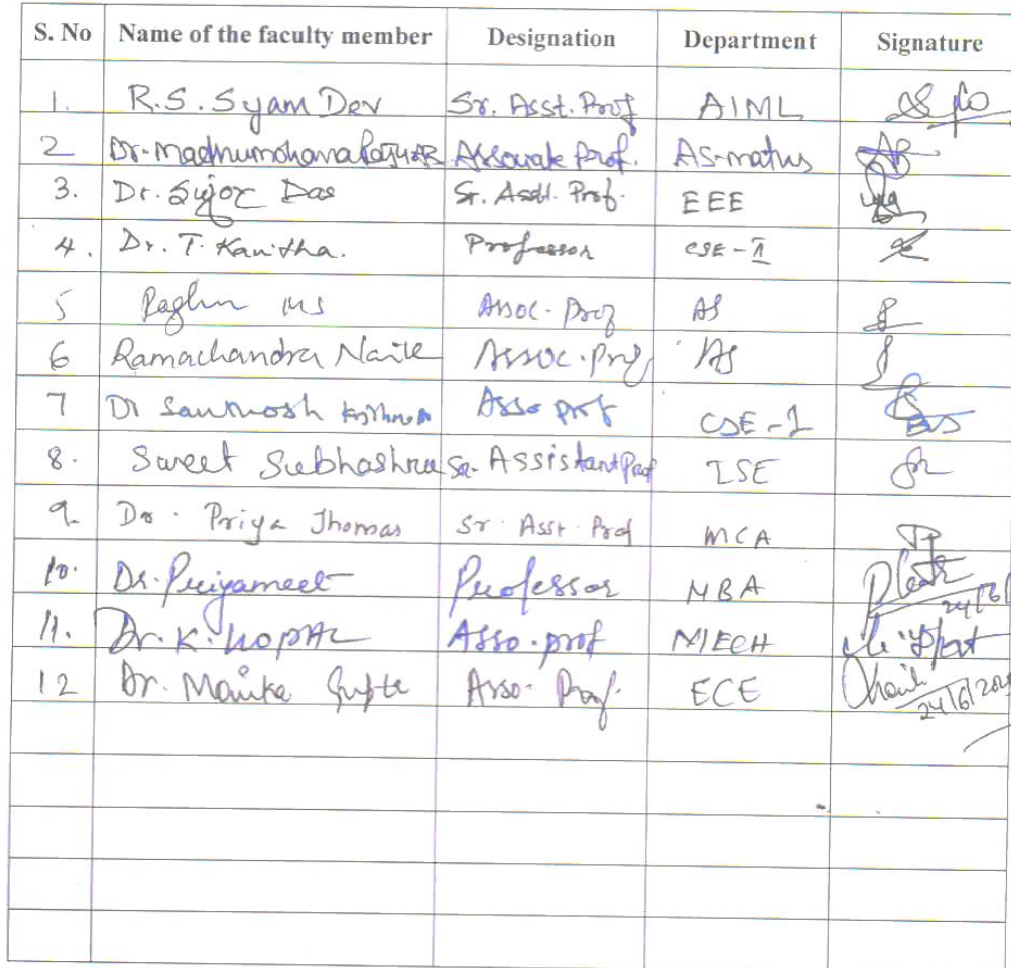 S. No Name of the faculty member Designation Department Signature
1. R.S. Syam Dev Sr. Asst. Prof AIML
2 Dr. Madhumohana Raju AB Associate Prof. AS-maths
3. Dr. Sujoy Das Sr. Asst. Prof. EEE
4. Dr. T. Kavitha. Professor CSE-II
5 Raghu MS Assoc. Prof AS
6 Ramachandra Naik Assoc. Prof AS
7 Dr Santhosh Krishna Asso prof CSE-1
8. Sweet Subhashree Sr. Assistant Prof ISE
9. Dr. Priya Thomas Sr. Asst. Prof MCA
10. Dr. Priyameet Professor MBA 24/6/
11. Dr. K. Asso. prof MECH
12 Dr. Monika Gupta Asso. Prof. ECE 24/6/202